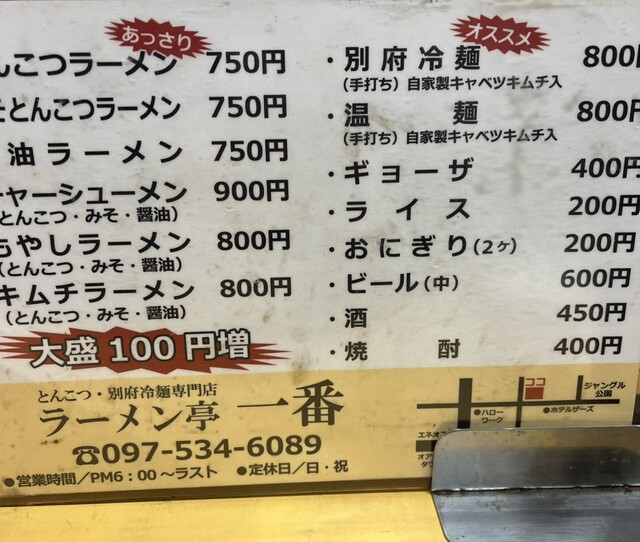 あっさり
んこつラーメン 750円
そとんこつラーメン 750円
油ラーメン 750円
ャーシューメン 900円
(とんこつ・みそ・醤油)
もやしラーメン 800円
(とんこつ・みそ・醤油)
キムチラーメン 800円
(とんこつ・みそ・醤油)
大盛100円増
オススメ
・別府冷麺 800円
(手打ち) 自家製キャベツキムチ入
・温麺 800円
(手打ち) 自家製キャベツキムチ入
・ギョーザ 400円
・ライス 200円
・おにぎり(2ヶ) 200円
・ビール(中) 600円
・酒 450円
・焼酎 400円
とんこつ・別府冷麺専門店
ラーメン亭 一番
☎097-534-6089
●営業時間/PM6:00〜ラスト ●定休日/日・祝
ココ
ジャングル
公園
●ハロー
ワーク
●ホテルザーズ
エネオ
オア
タワ